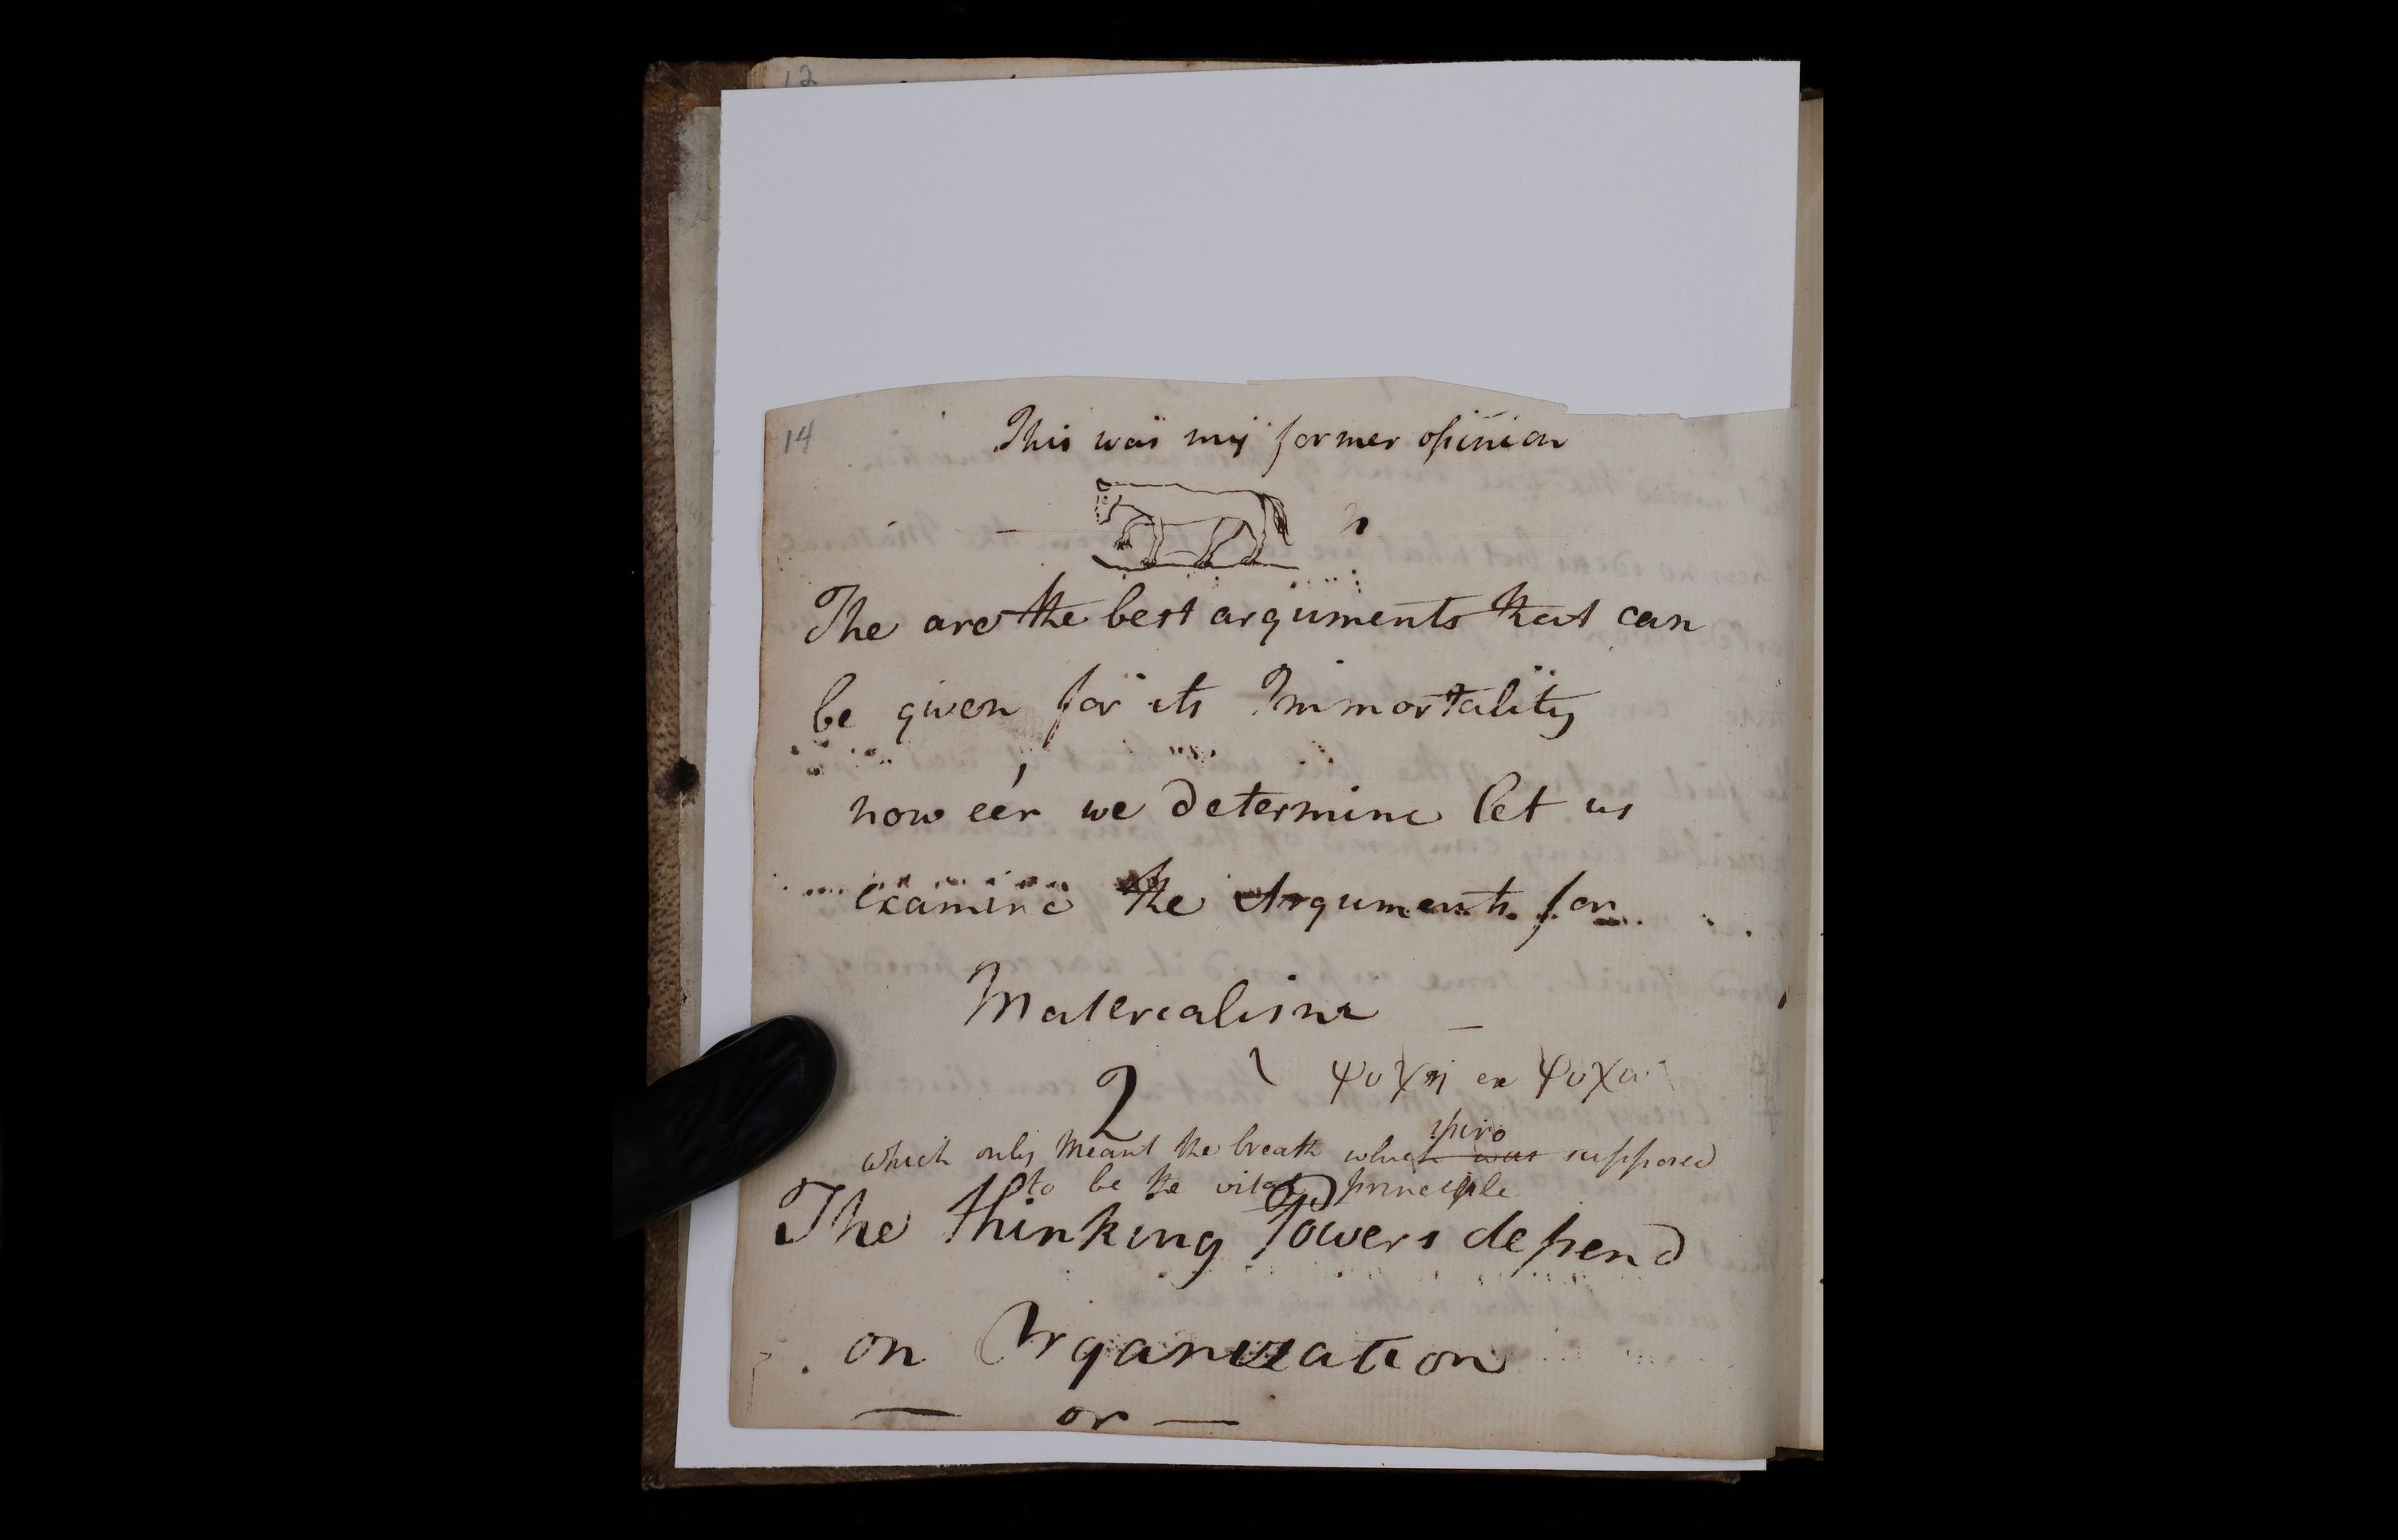 12
14
This was my former opinion
The are the best arguments that can
be given for its Immortality
how eér we determine let us
examine the Arguments for
Materialism
2 ψυχη ex ψυχω
spiro
which only meant the breath which was supposed
to be the vital principle
The thinking Powers depend
on Organization
— or —